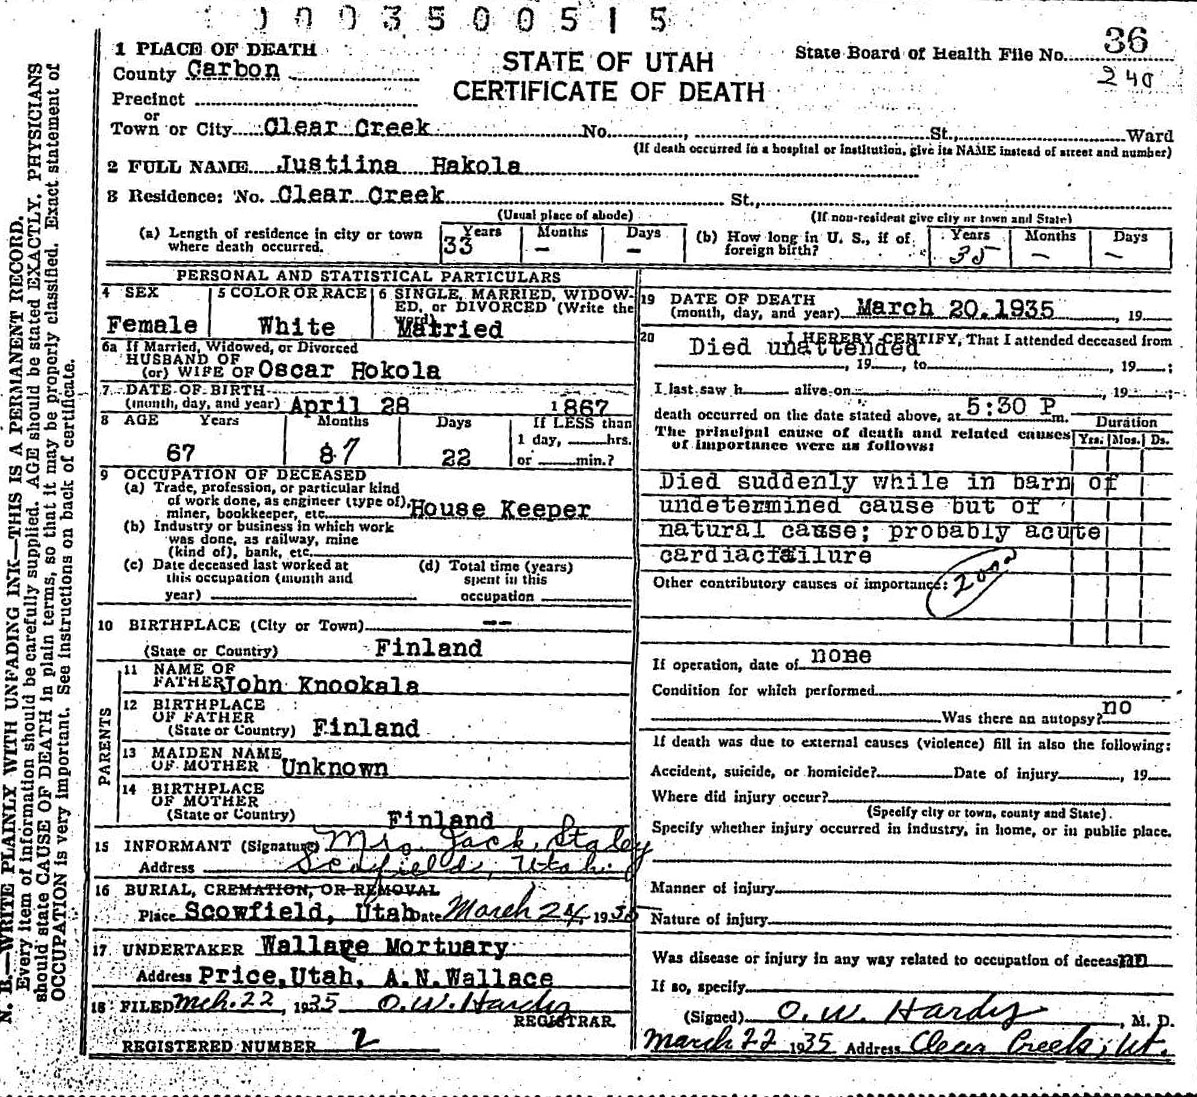 1003500515
1 PLACE OF DEATH
County Carbon
Precinct
or
Town or City Clear Creek No. , St., Ward
STATE OF UTAH
CERTIFICATE OF DEATH
State Board of Health File No. 36
240
(If death occurred in a hospital or institution, give its NAME instead of street and number)
2 FULL NAME Justiina Hakola
3 Residence: No. Clear Creek St.,
(Usual place of abode) (If non-resident give city or town and State)
(a) Length of residence in city or town where death occurred. Years 33 Months - Days -
(b) How long in U. S., if of foreign birth? Years 35 Months - Days -
PERSONAL AND STATISTICAL PARTICULARS
4 SEX
Female
5 COLOR OR RACE
White
6 SINGLE, MARRIED, WIDOWED, or DIVORCED (Write the word)
Married
6a If Married, Widowed, or Divorced
HUSBAND OF
(or) WIFE OF Oscar Hokola
7 DATE OF BIRTH
(month, day, and year) April 28 1867
8 AGE Years Months Days If LESS than
1 day, hrs.
67 87 22 or min.?
9 OCCUPATION OF DECEASED
(a) Trade, profession, or particular kind
of work done, as engineer (type of),
miner, bookkeeper, etc. House Keeper
(b) Industry or business in which work
was done, as railway, mine
(kind of), bank, etc.
(c) Date deceased last worked at
this occupation (month and
year)
(d) Total time (years)
spent in this
occupation
10 BIRTHPLACE (City or Town) --
(State or Country) Finland
PARENTS
11 NAME OF
FATHER John Knookala
12 BIRTHPLACE
OF FATHER
(State or Country) Finland
13 MAIDEN NAME
OF MOTHER Unknown
14 BIRTHPLACE
OF MOTHER
(State or Country) Finland
15 INFORMANT (Signature) Mrs. Jack Staley
Address Scofield, Utah.
16 BURIAL, CREMATION, OR REMOVAL
Place Scowfield, Utah Date March 24, 1935
17 UNDERTAKER Wallace Mortuary
Address Price, Utah, A.N.Wallace
18 FILED Mch. 22, 1935 O.W. Hardy
REGISTRAR.
REGISTERED NUMBER 2
19 DATE OF DEATH
(month, day, and year) March 20.1935 , 19
20 I HEREBY CERTIFY, That I attended deceased from
Died unattended
, 19 , to , 19 ;
I last saw h alive on , 19 ;
death occurred on the date stated above, at 5:30 P m.
The principal cause of death and related causes
of importance were as follows:
Duration
Yrs. Mos. Ds.
Died suddenly while in barn of
undetermined cause but of
natural cause; probably acute
cardiacfailure
Other contributory causes of importance:
If operation, date of none
Condition for which performed
Was there an autopsy? no
If death was due to external causes (violence) fill in also the following:
Accident, suicide, or homicide? Date of injury , 19
Where did injury occur?
(Specify city or town, county and State).
Specify whether injury occurred in industry, in home, or in public place.
Manner of injury
Nature of injury
Was disease or injury in any way related to occupation of deceased no
If so, specify
(Signed) O. W. Hardy , M. D.
March 22 1935 Address Clear Creek, Ut.
N. B.—WRITE PLAINLY WITH UNFADING INK—THIS IS A PERMANENT RECORD.
Every item of information should be carefully supplied. AGE should be stated EXACTLY. PHYSICIANS
should state CAUSE OF DEATH in plain terms, so that it may be properly classified. Exact statement of
OCCUPATION is very important. See instructions on back of certificate.